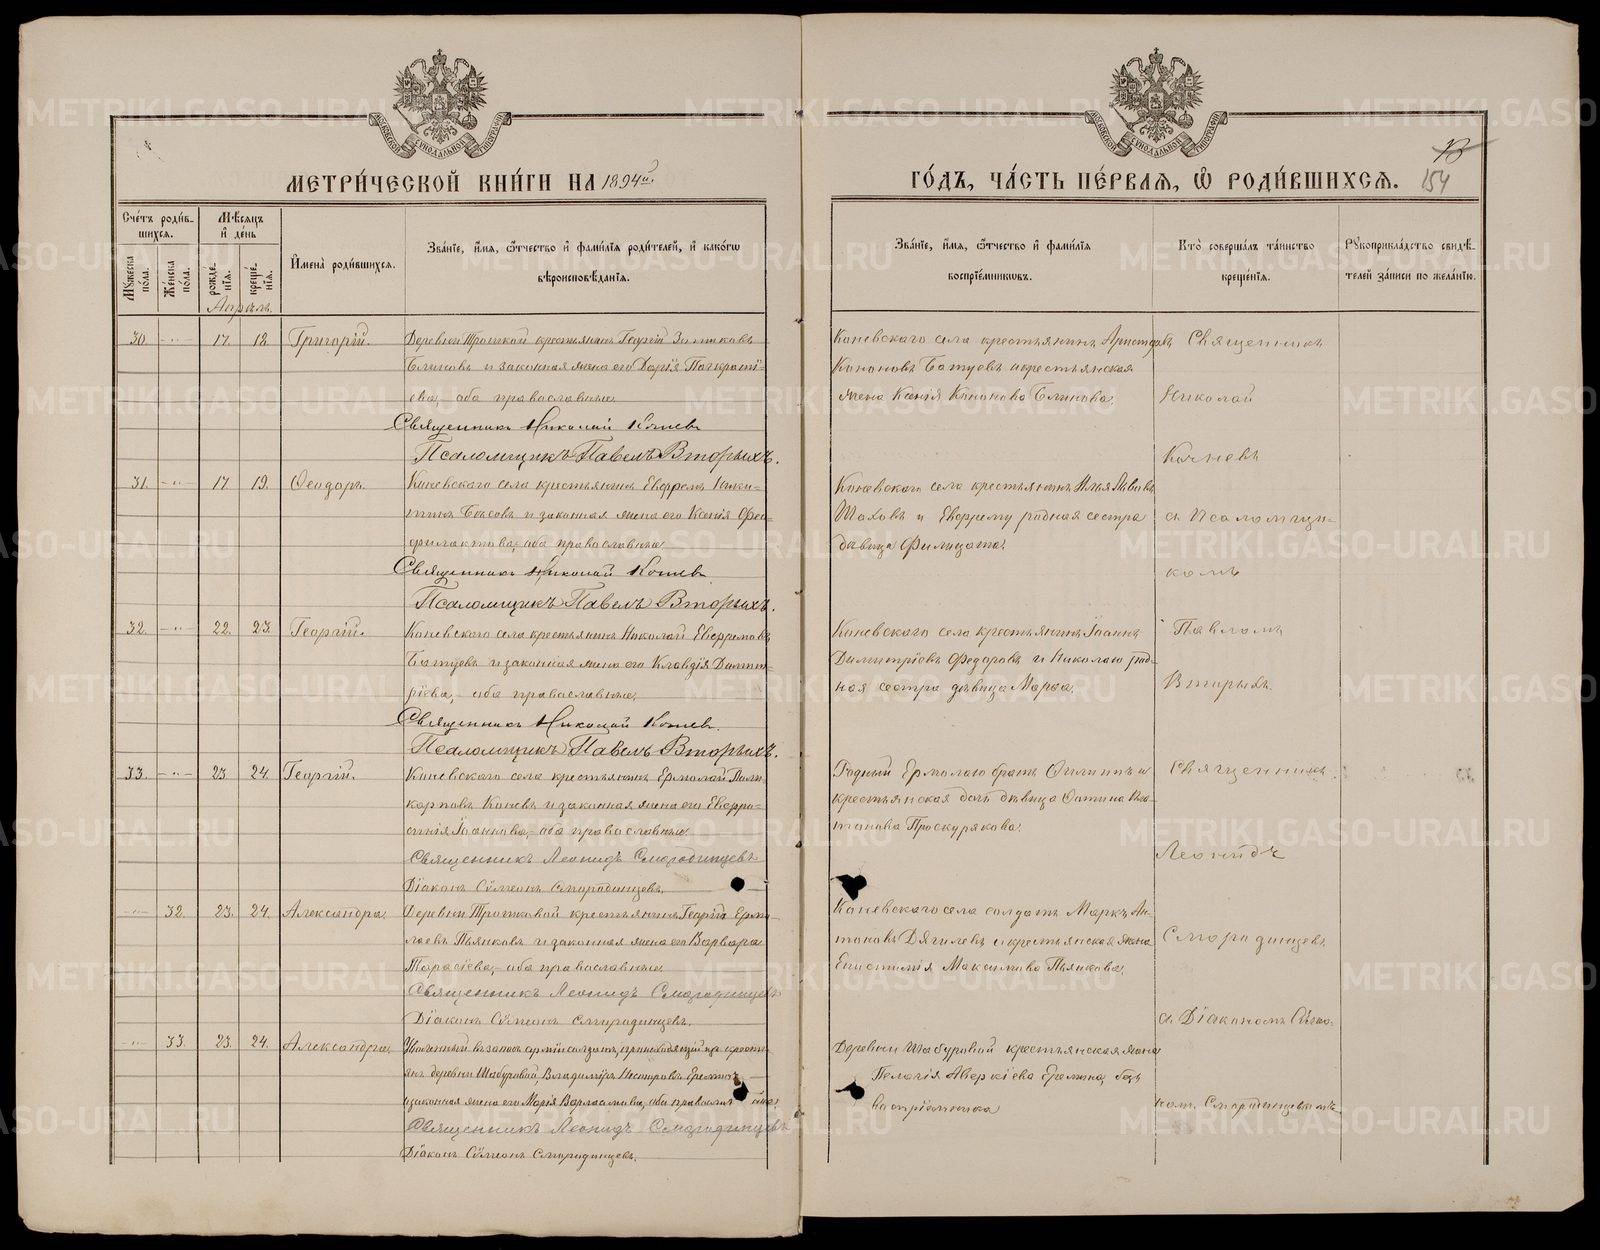 МЕТРИ́ЧЕСКОЙ КНИ́ГИ НА 1894й.
ГО́ДЪ, ЧА́СТЬ ПЕ́РВАЯ, Ѡ РОДИ́ВШИХСЯ.
154
Сче́тъ роди́в-
шихся.
Мѣсяцъ
и де́нь
Мꙋ́жеска по́ла.
Же́нска по́ла.
рожде́-
нїя.
креще́-
нїя.
И҆мена̀ роди́вшихся.
Зва́нїе, и҆́мя, ѻ҆́тчество и҆ фами́лїя роди́телей, и҆ како́гѡ
вѣроисповѣ́данїя.
Зва́нїе, и҆́мя, ѻ҆́тчество и҆ фами́лїя
воспрїе́мниковъ.
Кто̀ соверша́лъ та́инство
креще́нїя.
Рꙋкоприкла́дство свидѣ́-
телей за́писи по жела́нїю.
Апрѣль.
30. -"- 17. 18. Григорій.
Деревни крестьянинъ Георгій
Блиновъ и законная жена его Дарія Панкраті-
ева, оба православные
Священникъ Николай Кочневъ
Псаломщикъ Павелъ Вторыхъ.
Каневскаго села крестьянинъ
Кононовъ Батуевъ и крестьянская
жена Ксенія Кононова Блинова.
Священникъ
Николай
Кочневъ
31. -"- 17. 19. Ѳеодоръ.
Каневскаго села крестьянинъ Евфремъ Ники-
тинъ и законная жена его Ксенія Фео-
филактова, оба православные
Священникъ Николай Кочневъ
Псаломщикъ Павелъ Вторыхъ.
Каневскаго села крестьянинъ Илья
Шаховъ и Евфрему родная сестра
дѣвица Филицата.
съ Псаломщи-
комъ
32. -"- 22. 23. Георгій.
Каневскаго села крестьянинъ Николай Евфремовъ
Батуевъ и законная жена его Клавдія Димит-
ріева, оба православные
Священникъ Николай Кочневъ
Псаломщикъ Павелъ Вторыхъ.
Каневскаго села крестьянинъ Іоаннъ
Димитріевъ Федоровъ и Николаю род-
ная сестра дѣвица Марѳа.
Павломъ
Вторыхъ.
33. -"- 23. 24. Георгій.
Каневскаго села крестьянинъ Ермолай Поли-
карповъ Каневъ и законная жена его Евфро-
синія Іоаннова, оба православные
Священникъ Леонидъ Смородинцевъ
Діаконъ Сѵмеонъ Смородинцевъ.
Родный Ермолаю братъ Филиппъ и
крестьянская дочь дѣвица
Проскурякова.
Священникъ
Леонидъ
-"- 32. 23. 24. Александра.
Деревни крестьянинъ Георгій Ермо-
лаевъ Пьянковъ и законная жена его Варвара
Тарасіева, оба православные
Священникъ Леонидъ Смородинцевъ
Діаконъ Сѵмеонъ Смородинцевъ.
Каневскаго села солдатъ Маркъ Ан-
тоновъ Дягилевъ и крестьянская жена
Епистимія Максимова Пьянкова.
Смородинцевъ
съ Діакономъ Сѵмео-
-"- 33. 23. 24. Александра.
Уволенный въ запасъ арміи солдатъ, происходящій изъ кресть-
янъ деревни Шабуровой, Владиміръ Несторовъ
и законная жена его Марія Варлаамова, оба православные
Священникъ Леонидъ Смородинцевъ
Діаконъ Сѵмеонъ Смородинцевъ.
Деревни Шабуровой крестьянская жена
Пелагія Аверкіева Еремина, безъ
воспріемника
номъ Смородинцевымъ.